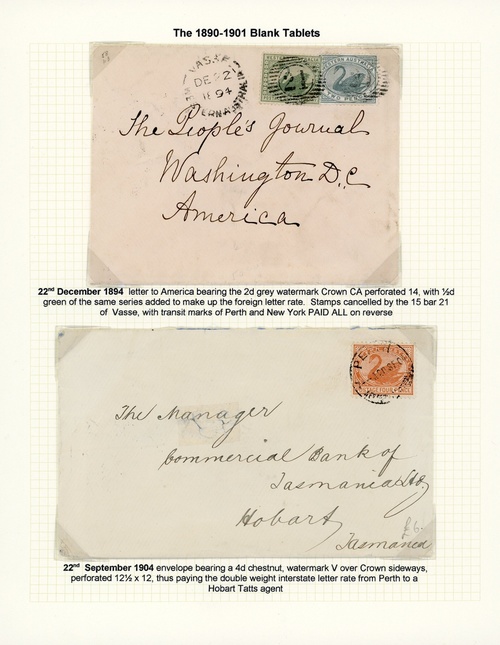 The 1890-1901 Blank Tablets
VASSE
DE 22
94
WESTERN AUSTRALIA
21
WESTERN AUSTRALIA
TWO PENCE
The People's Journal
Washington D.C
America
22nd December 1894 letter to America bearing the 2d grey watermark Crown CA perforated 14, with ½d
green of the same series added to make up the foreign letter rate. Stamps cancelled by the 15 bar 21
of Vasse, with transit marks of Perth and New York PAID ALL on reverse
PERTH
The Manager
Commercial Bank of
Tasmania Ltd.
Hobart
Tasmania
22nd September 1904 envelope bearing a 4d chestnut, watermark V over Crown sideways,
perforated 12½ x 12, thus paying the double weight interstate letter rate from Perth to a
Hobart Tatts agent